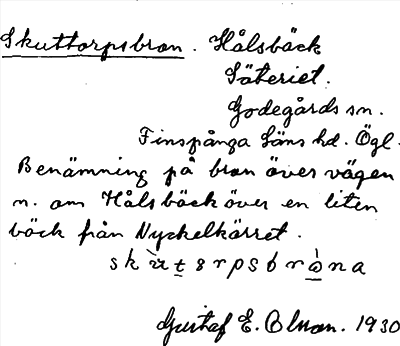 Skuttorpsbron. Hålsbäck
Säteriet.
Godegårds sn.
Finspånga läns hd. Ögl.
Benämning på bron över vägen
n. om Hålsbäck över en liten
bäck från Nyckelkärret.
skùt̲srpsbrò̲na
Gustaf E. Olsson. 1930